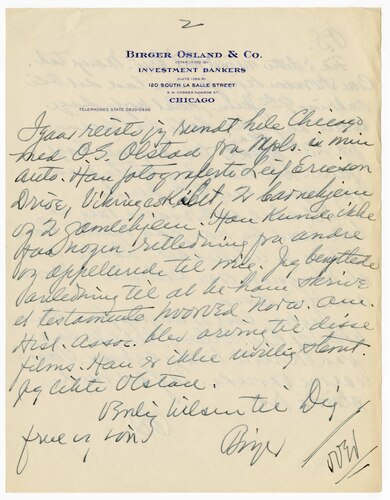 2
BIRGER OSLAND & CO.
ESTABLISHED 1911
INVESTMENT BANKERS
120 SOUTH LA SALLE STREET
S. W. CORNER MONROE ST.
CHICAGO
TELEPHONES STATE
I gaar reiste jeg rundt hele Chicago
med O.S. Olstad fra Mpls. i min
auto. Han fotograferte Leif Ericson
Drive, Vikingskibet, 2 barnehjem
og 2 gamlehjem. Han kunde ikke
faa nogen veiledning fra andre
og appellerede til mig. Jeg benyttede
anledning til at be ham skrive
et testamente hvorved Norw. Am.
Hist. Assoc. blev arving til disse
films. Han er ikke
Jeg likte Olstad.
Venlig hilsen til Dig
frue og sön
Birger